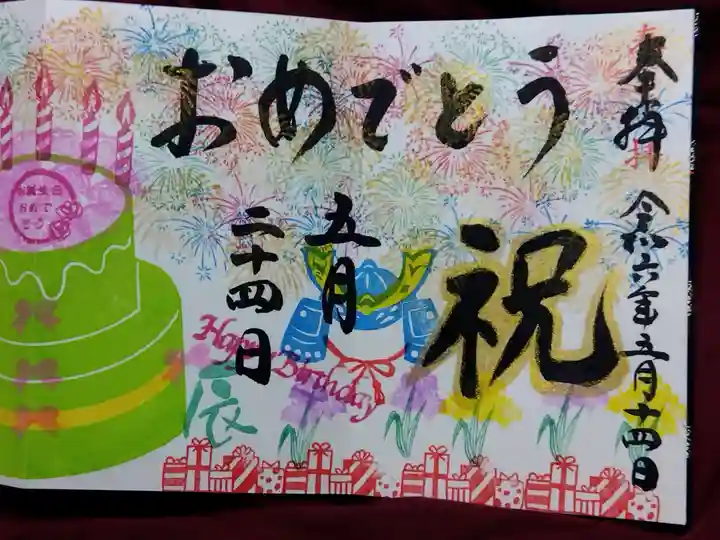 奉拝
令和六年五月十四日
おめでとう
祝
五月
二十四日
Happy Birthday
辰
お誕生日
おめで
とう